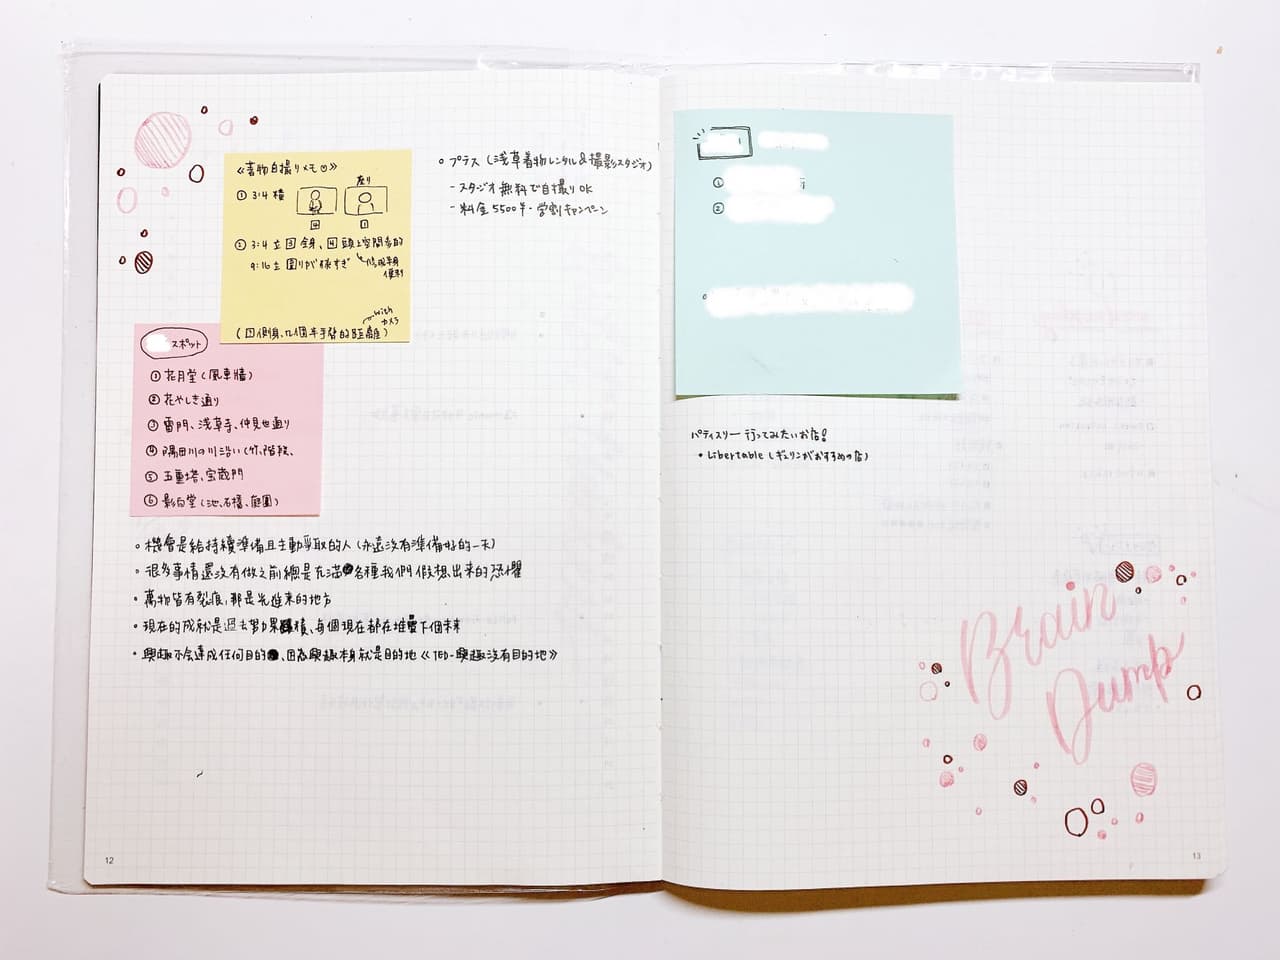 《着物自撮りメモ》
① 3:4 横
座り
4
1
② 3:4 立 3 全身、4 頭上空間多的
9:16 立 周りが様すぎ
半身
便利
with
カメラ
(1 側身、九個半手臂的距離)
スポット
① 花月堂(風車牆)
② 花やしき通り
③ 雷門、浅草寺、仲見世通り
④ 隅田川の川沿い(竹、階段、
⑤ 五重塔、宝蔵門
⑥ 影向堂(池、石橋、庭園)
プラス(浅草着物レンタル&撮影スタジオ)
- スタジオ無料で自撮りOK
- 料金5500円・学割キャンペーン
• 機會是給持續準備且主動爭取的人(永遠沒有準備好的一天)
• 很多事情還沒有做之前總是充滿各種我們假想出來的恐懼
• 萬物皆有裂痕,那是光進來的地方
• 現在的成就是過去努力累積、每個現在都在堆疊下個未來
• 興趣不会達成任何目的、因為興趣本身就是目的地《TED-興趣沒有目的地》
12
①
②
パティスリー 行ってみたいお店!
• Libertable (ギュリンがおすすめの店)
Brain
Dump
13